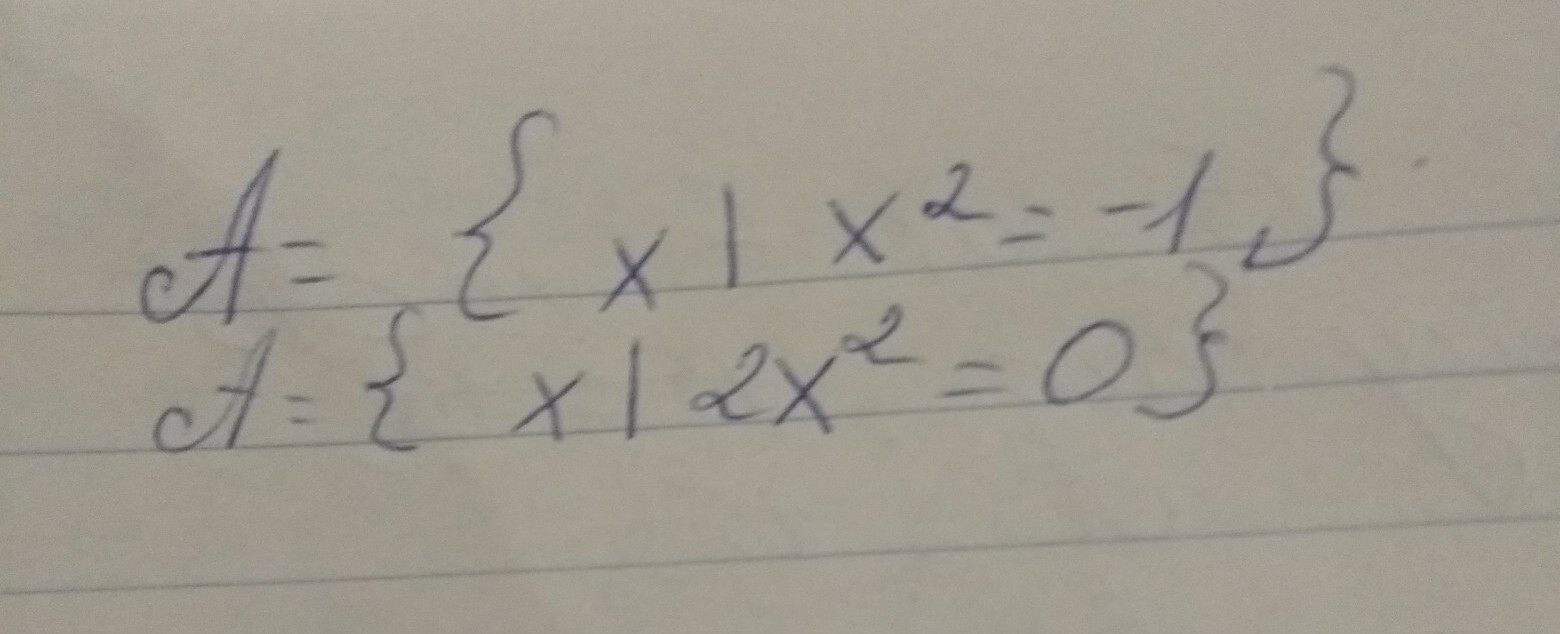 A = { x | x² = -1 }.
A = { x | 2x² = 0 }